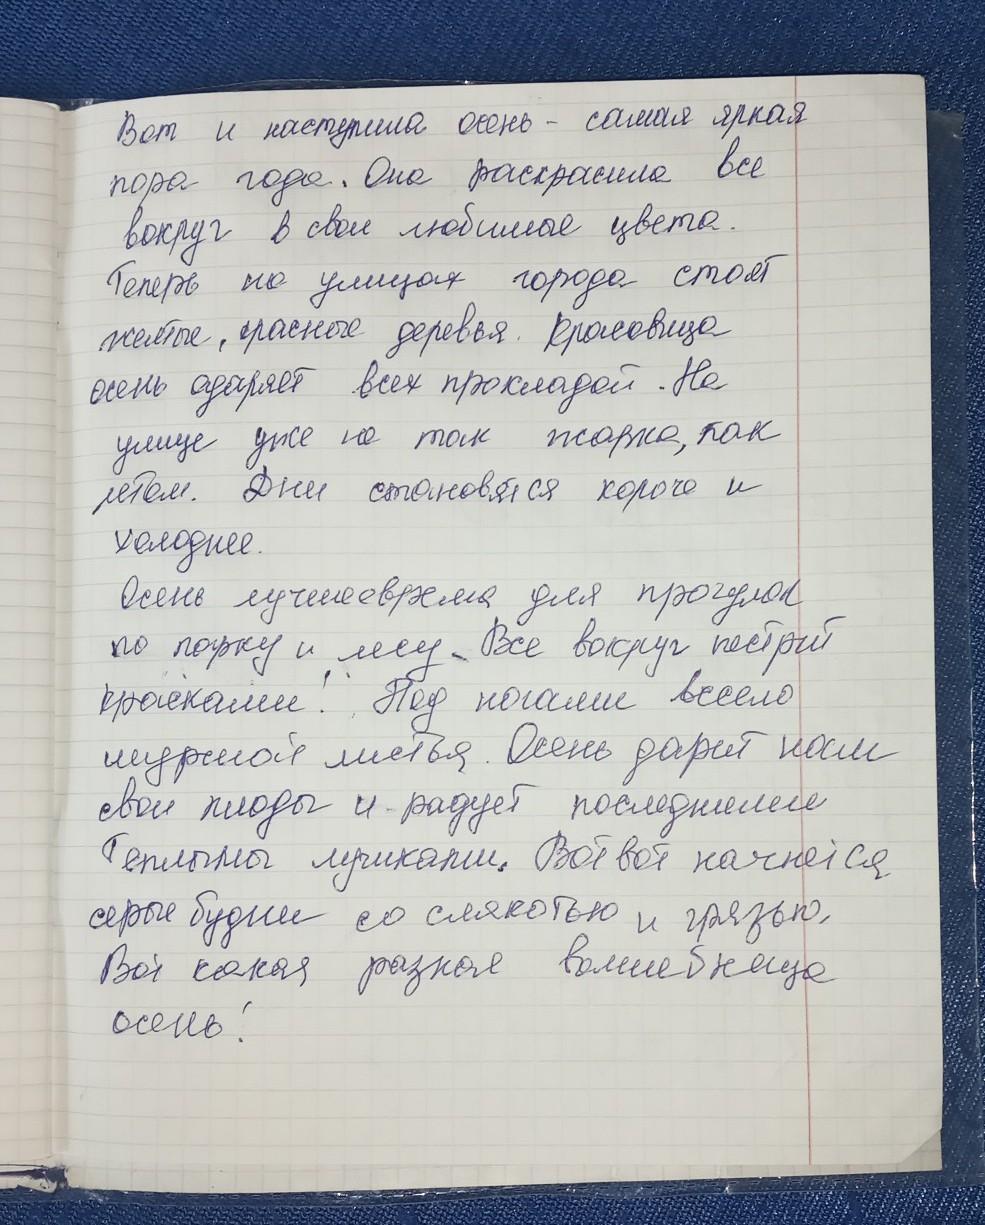 Вот и наступила осень - самая яркая
пора года. Она раскрасила все
вокруг в свои любимые цвета.
Теперь на улицах города стоят
желтые, красные деревья. Красавица
осень одаряет всех прохладой. На
улице уже не так жарко, как
летом. Дни становятся короче и
холоднее.
Осень лучшее время для прогулок
по парку и лесу. Все вокруг пестрит
красками! Под ногами весело
шуршат листья. Осень дарит нам
свои плоды и радует последними
теплыми лучиками. Вот вот начнется
серые будни со слякотью и грязью.
Вот какая разная волшебница
осень!